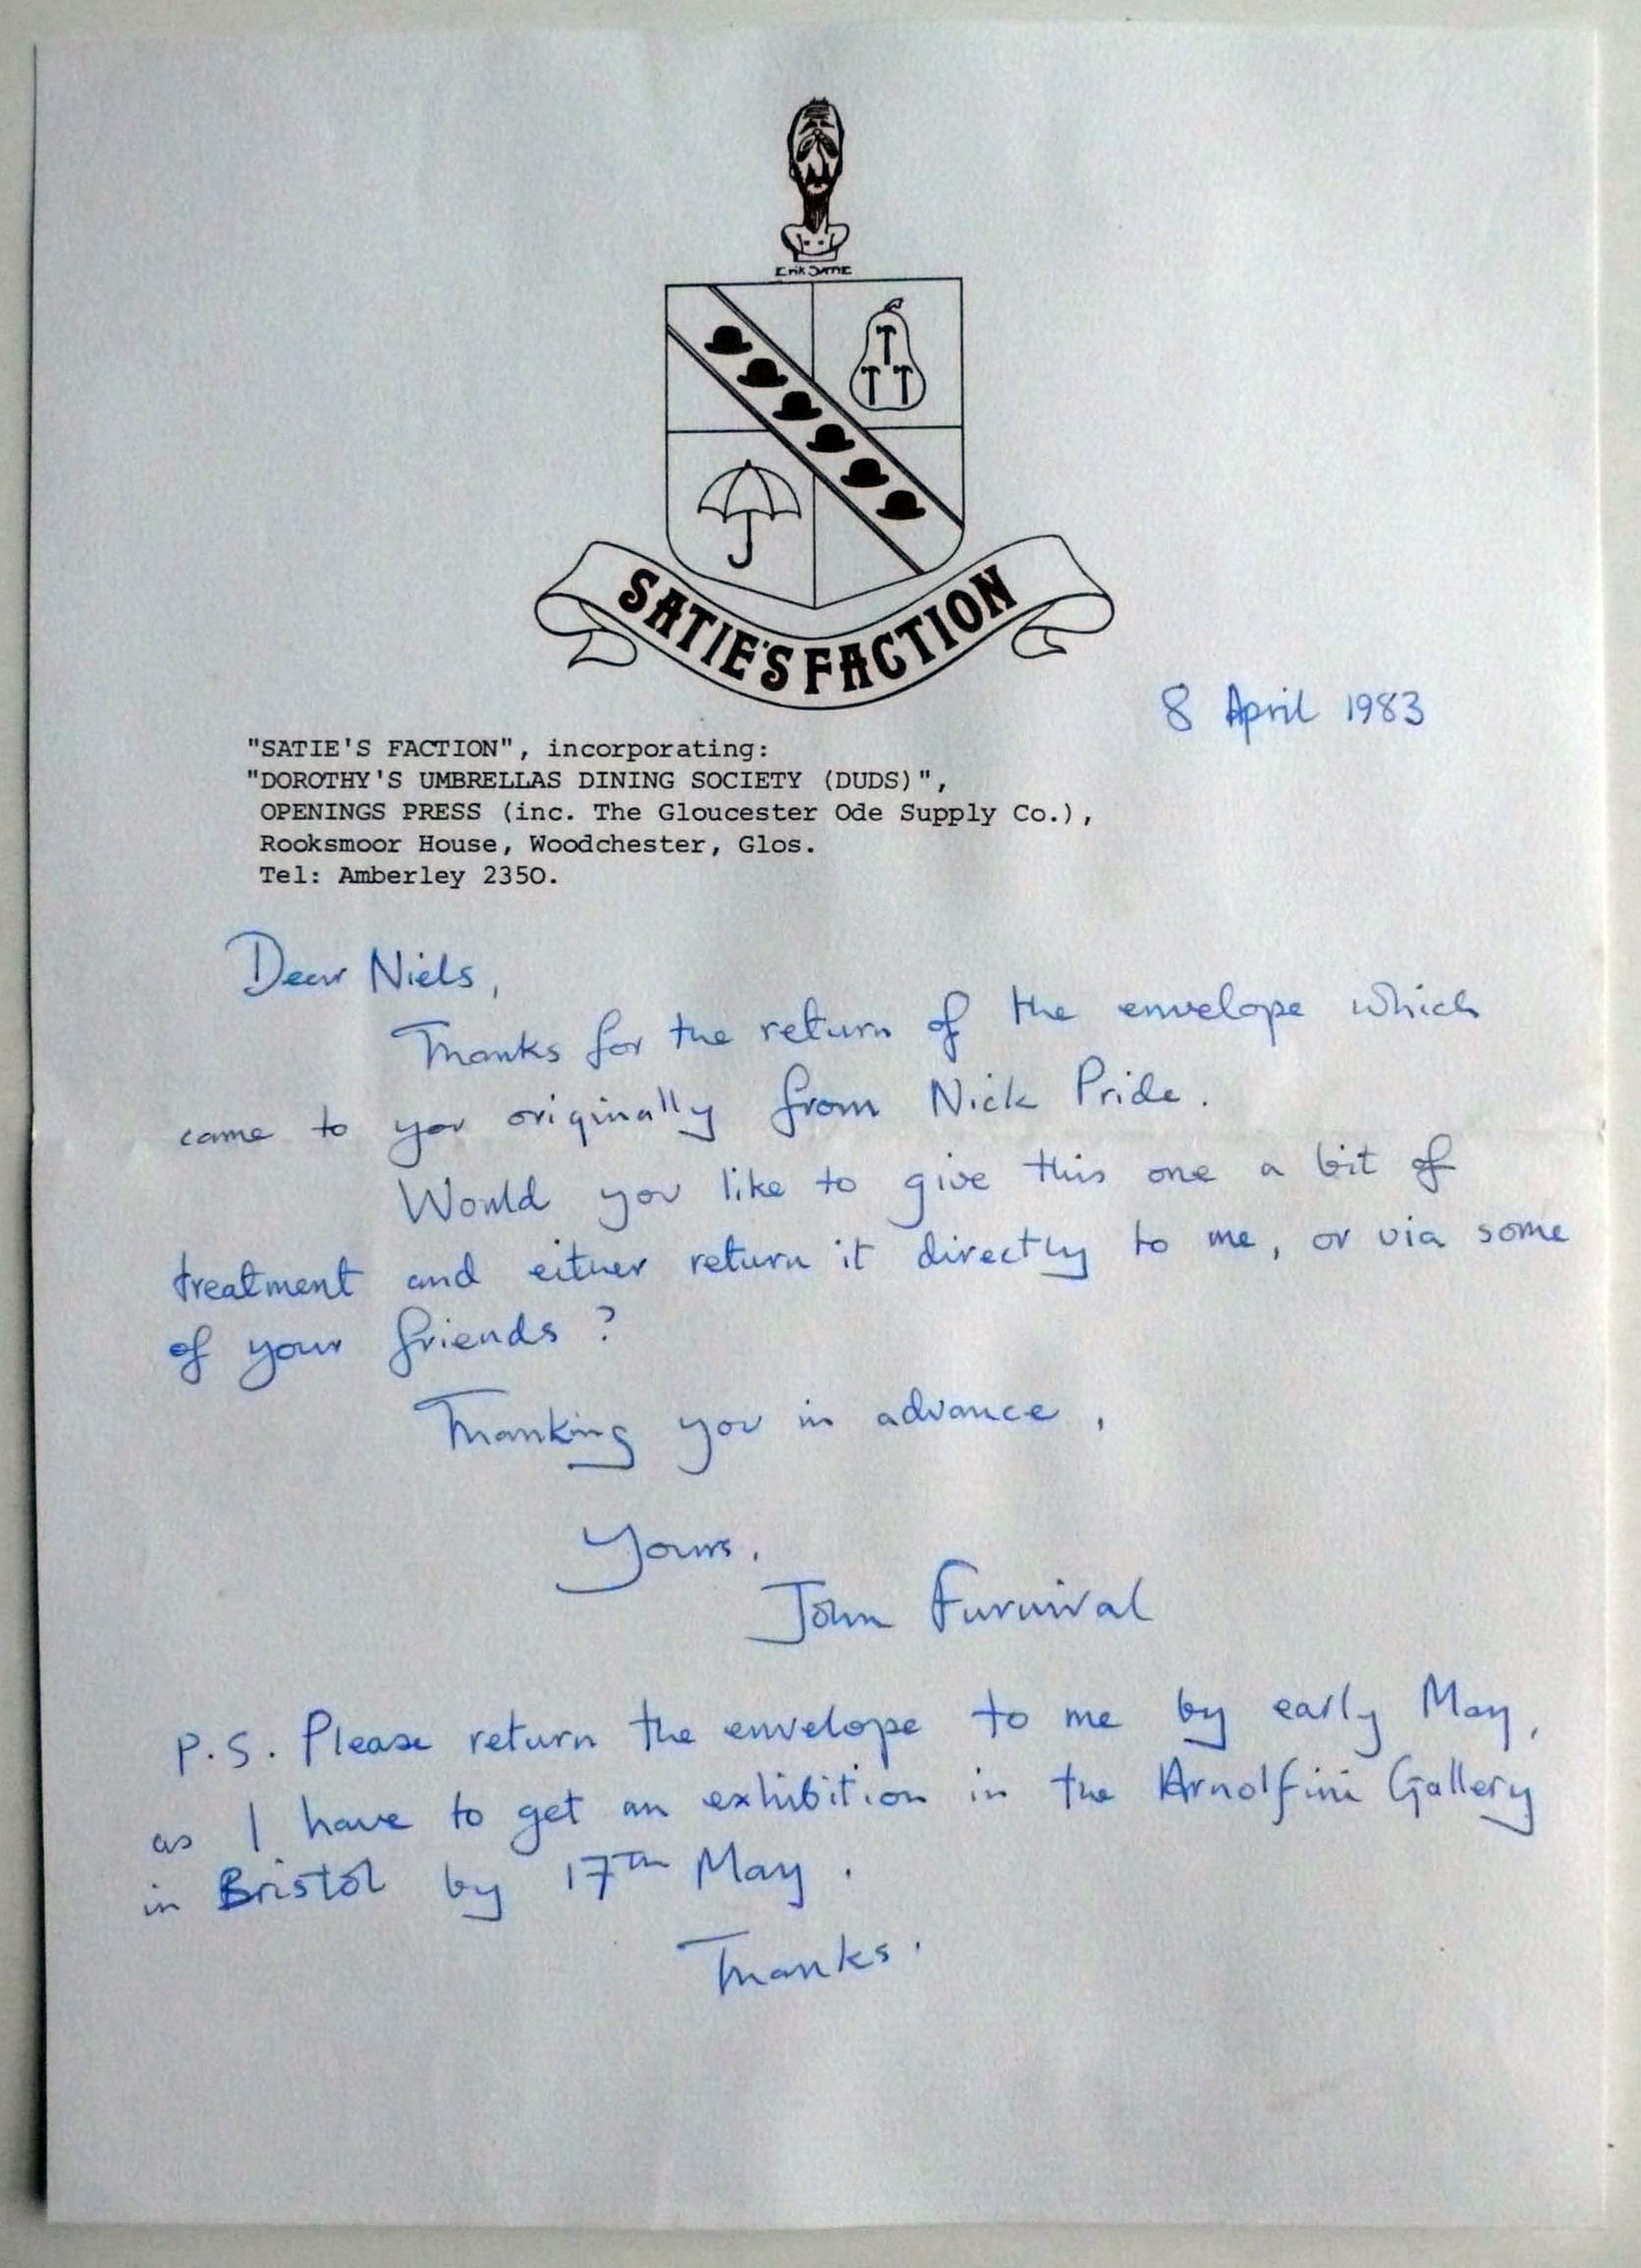 Erik SATIE
SATIE'S FACTION
8 April 1983
"SATIE'S FACTION", incorporating:
"DOROTHY'S UMBRELLAS DINING SOCIETY (DUDS)",
OPENINGS PRESS (inc. The Gloucester Ode Supply Co.),
Rooksmoor House, Woodchester, Glos.
Tel: Amberley 2350.
Dear Niels,
Thanks for the return of the envelope which
came to you originally from Nick Pride.
Would you like to give this one a bit of
treatment and either return it directly to me, or via some
of your friends?
Thanking you in advance,
Yours,
John Furnival
P.S. Please return the envelope to me by early May,
as I have to get an exhibition in the Arnolfini Gallery
in Bristol by 17th May.
Thanks.